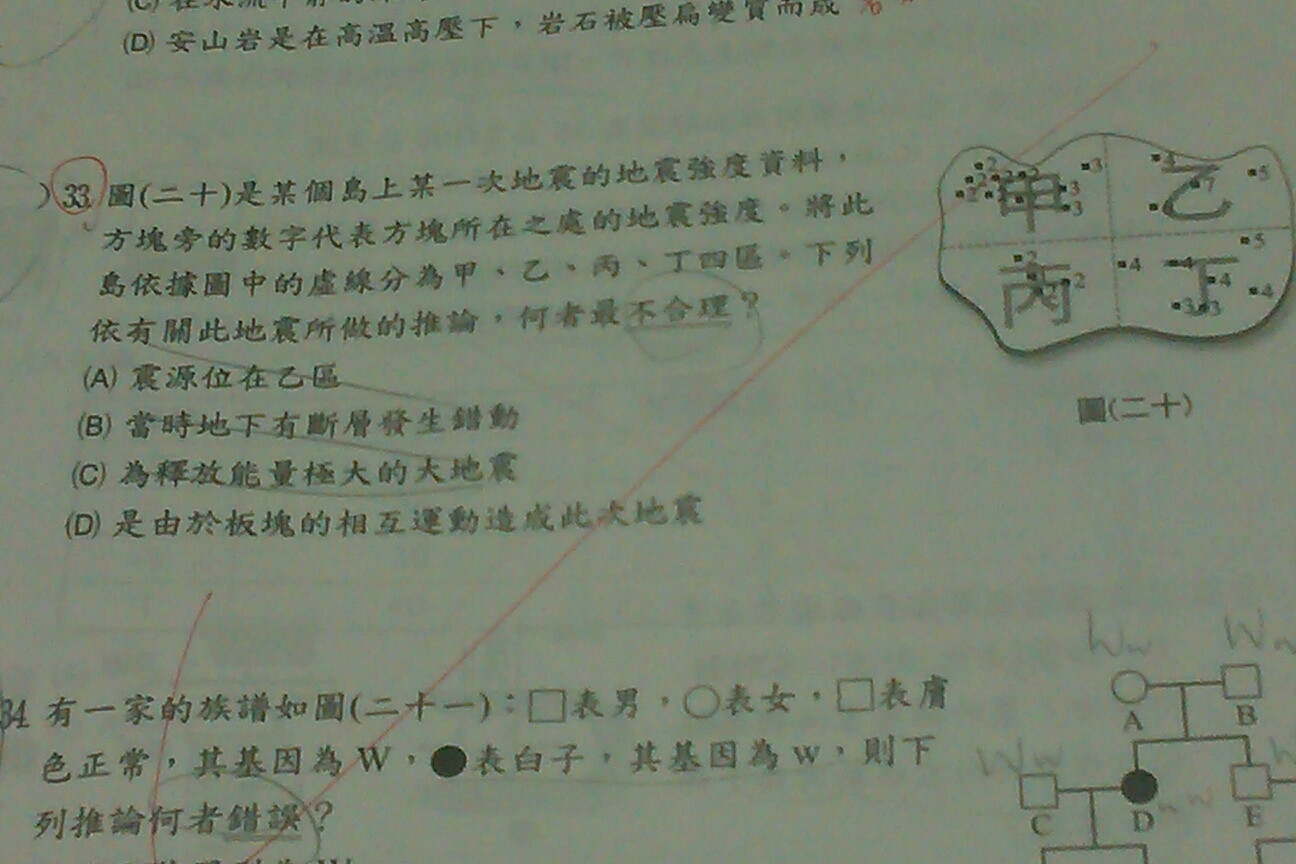 (D) 安山岩是在高溫高壓下，岩石被壓扁變質而成
)33. 圖(二十)是某個島上某一次地震的地震強度資料，
方塊旁的數字代表方塊所在之處的地震強度。將此
島依據圖中的虛線分為甲、乙、丙、丁四區。下列
依有關此地震所做的推論，何者最不合理？
(A) 震源位在乙區
(B) 當時地下有斷層發生錯動
(C) 為釋放能量極大的大地震
(D) 是由於板塊的相互運動造成此次地震
2 3 4 5
甲 乙
2 3 7
3
2 4 4 5
丙 丁
2 4 4
3 3
圖(二十)
34. 有一家的族譜如圖(二十一)：□表男，○表女，□表膚
色正常，其基因為 W，●表白子，其基因為 w，則下
列推論何者錯誤？
Ww
A B
Ww
ww
C D E